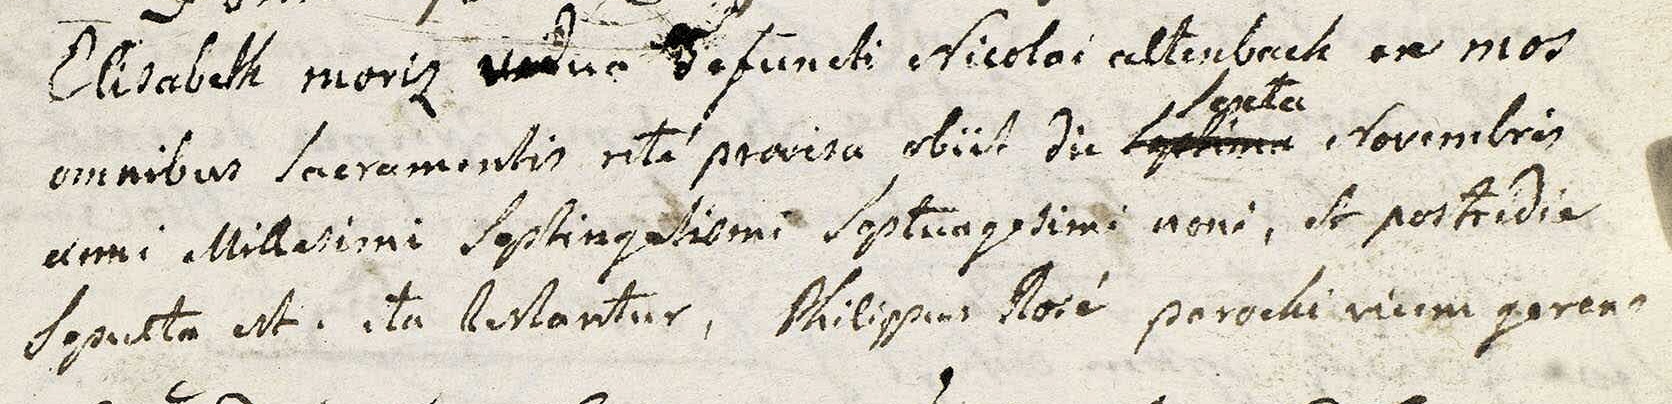 Elisabeth moriz vidua defuncti Nicolai altenbach ex mos
Sexta
omnibus Sacramentis rité provisa obiit die septima Novembris
anni Millesimi Septingetismi Septuagesimi noni, et postridie
Sepulta est. ita testantur, Philippus Rosé parochi vicem gerens